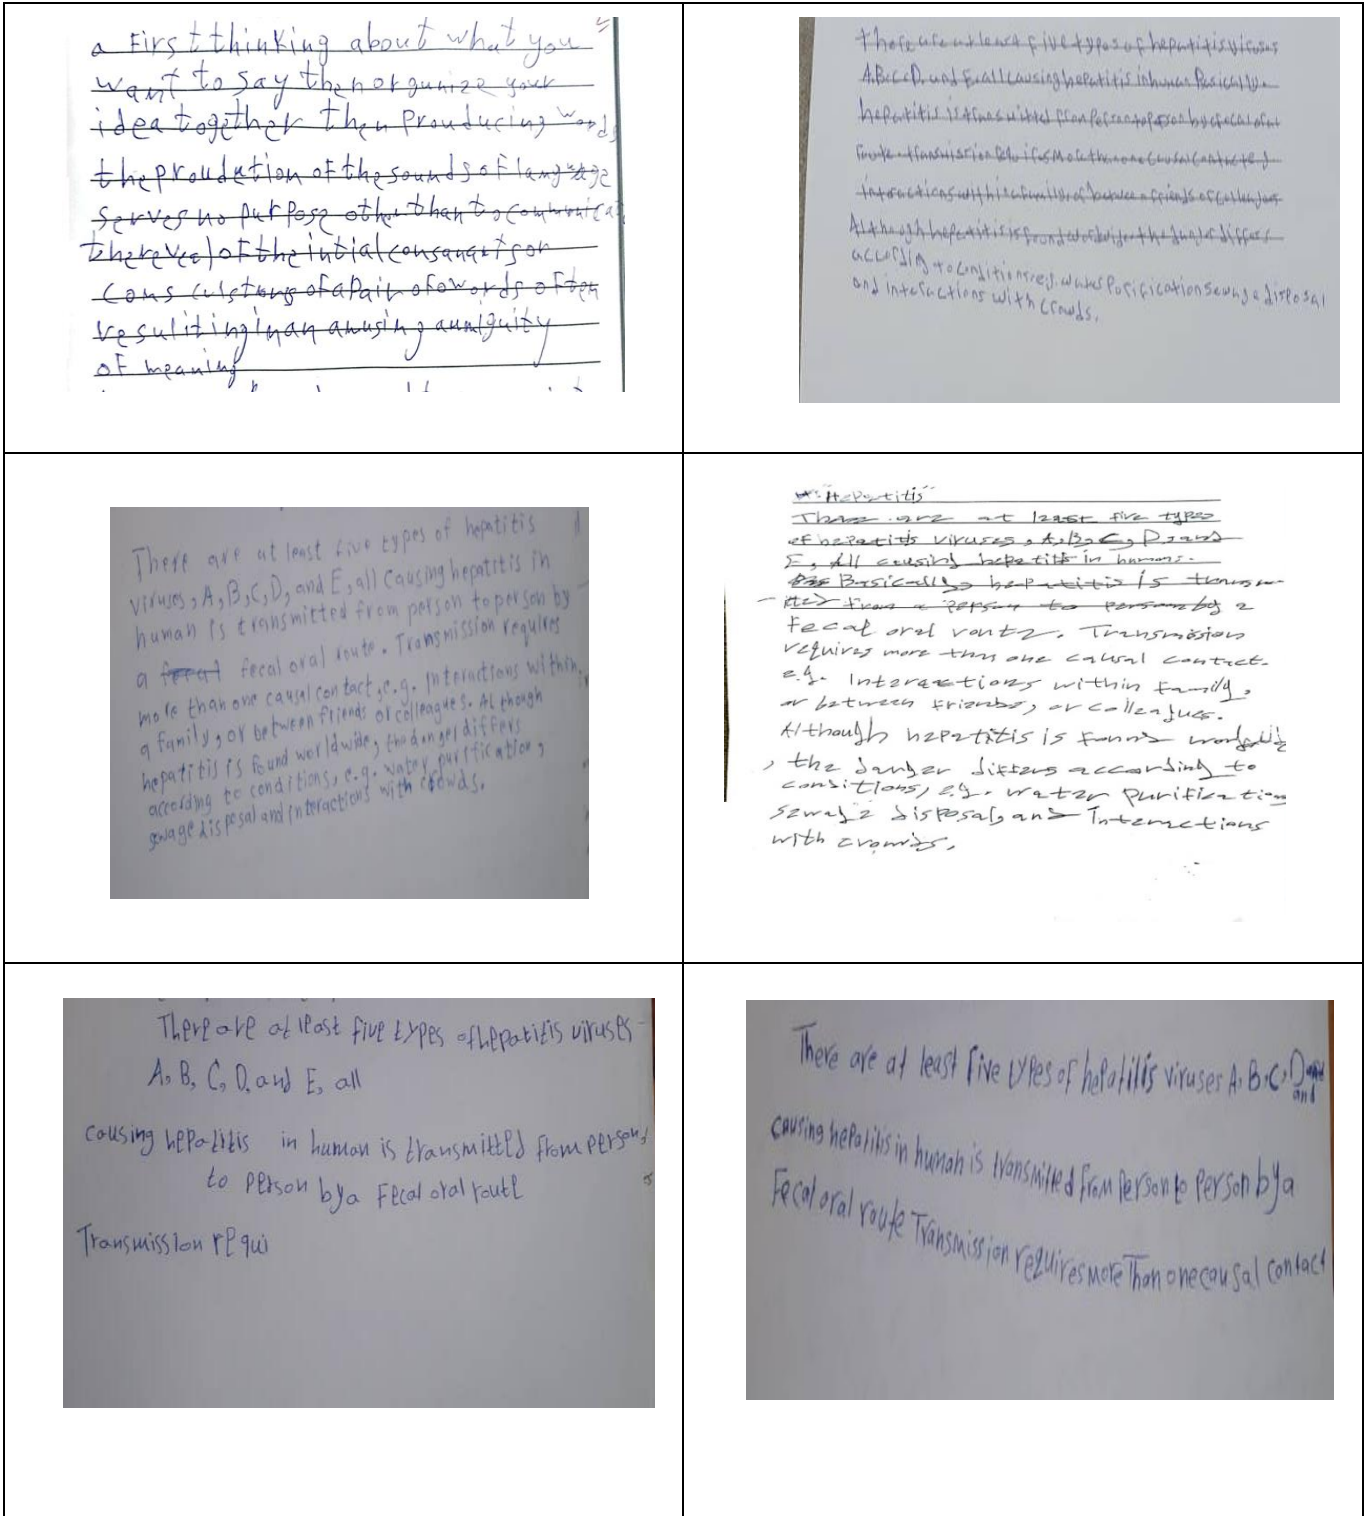 a First thinking about what you
want to say then orgunize your
idea together then Prouducing words
the proudution of the sounds of language
serves no purpose other than to communicat
of the intial consanants or
of a Pair of words often
resuliting in an amusing ambiguity
of meaning
There are at least five types of hepatitis viruses
A.B.C.D, and E, all causing hepatitis in human Basically.
hepatitis is from person to person by a fecal oral
more than one causal contact e.g
interactions within a family or between friends or collengues
Although hepatitis is found worldwide the danger differs
according to conditions e.g. water Purification sewage disposal
and interactions with crowds.
There are at least five types of hepatitis
viruses, A, B, C, D, and E, all causing hepatitis in
human is transmitted from person to person by
a fecal fecal oral route. Transmission requires
more than one causal contact, e.g. interactions within
a family, or between friends or colleagues. Although
hepatitis is found worldwide, the danger differs
according to conditions, e.g. water purification,
sewage disposal and interactions with crowds.
"Hepatitis"
There are at least five types
of hepatitis viruses, A, B, C, D, and
E, All causing hepatitis in humans.
Basically, hepatitis is transm-
itted from a person to person by a
Fecal oral route. Transmission
requires more than one causal contact.
e.g. Interactions within family,
or between friends, or colleagues.
Although hepatitis is found worldwide
, the danger differs according to
conditions, e.g. water purification
sewage disposal, and Interactions
with crowds.
There are at least five types of hepatitis viruses
A, B, C, D, and E, all
causing hepatitis in human is transmitted from person
to person by a Fecal oral route
Transmission requi
There are at least Five types of hepatitis viruses A, B, C, D and
and
causing hepatitis in human is transmitted from Person to Person by a
Fecal oral route Transmission requires more Than one causal contact